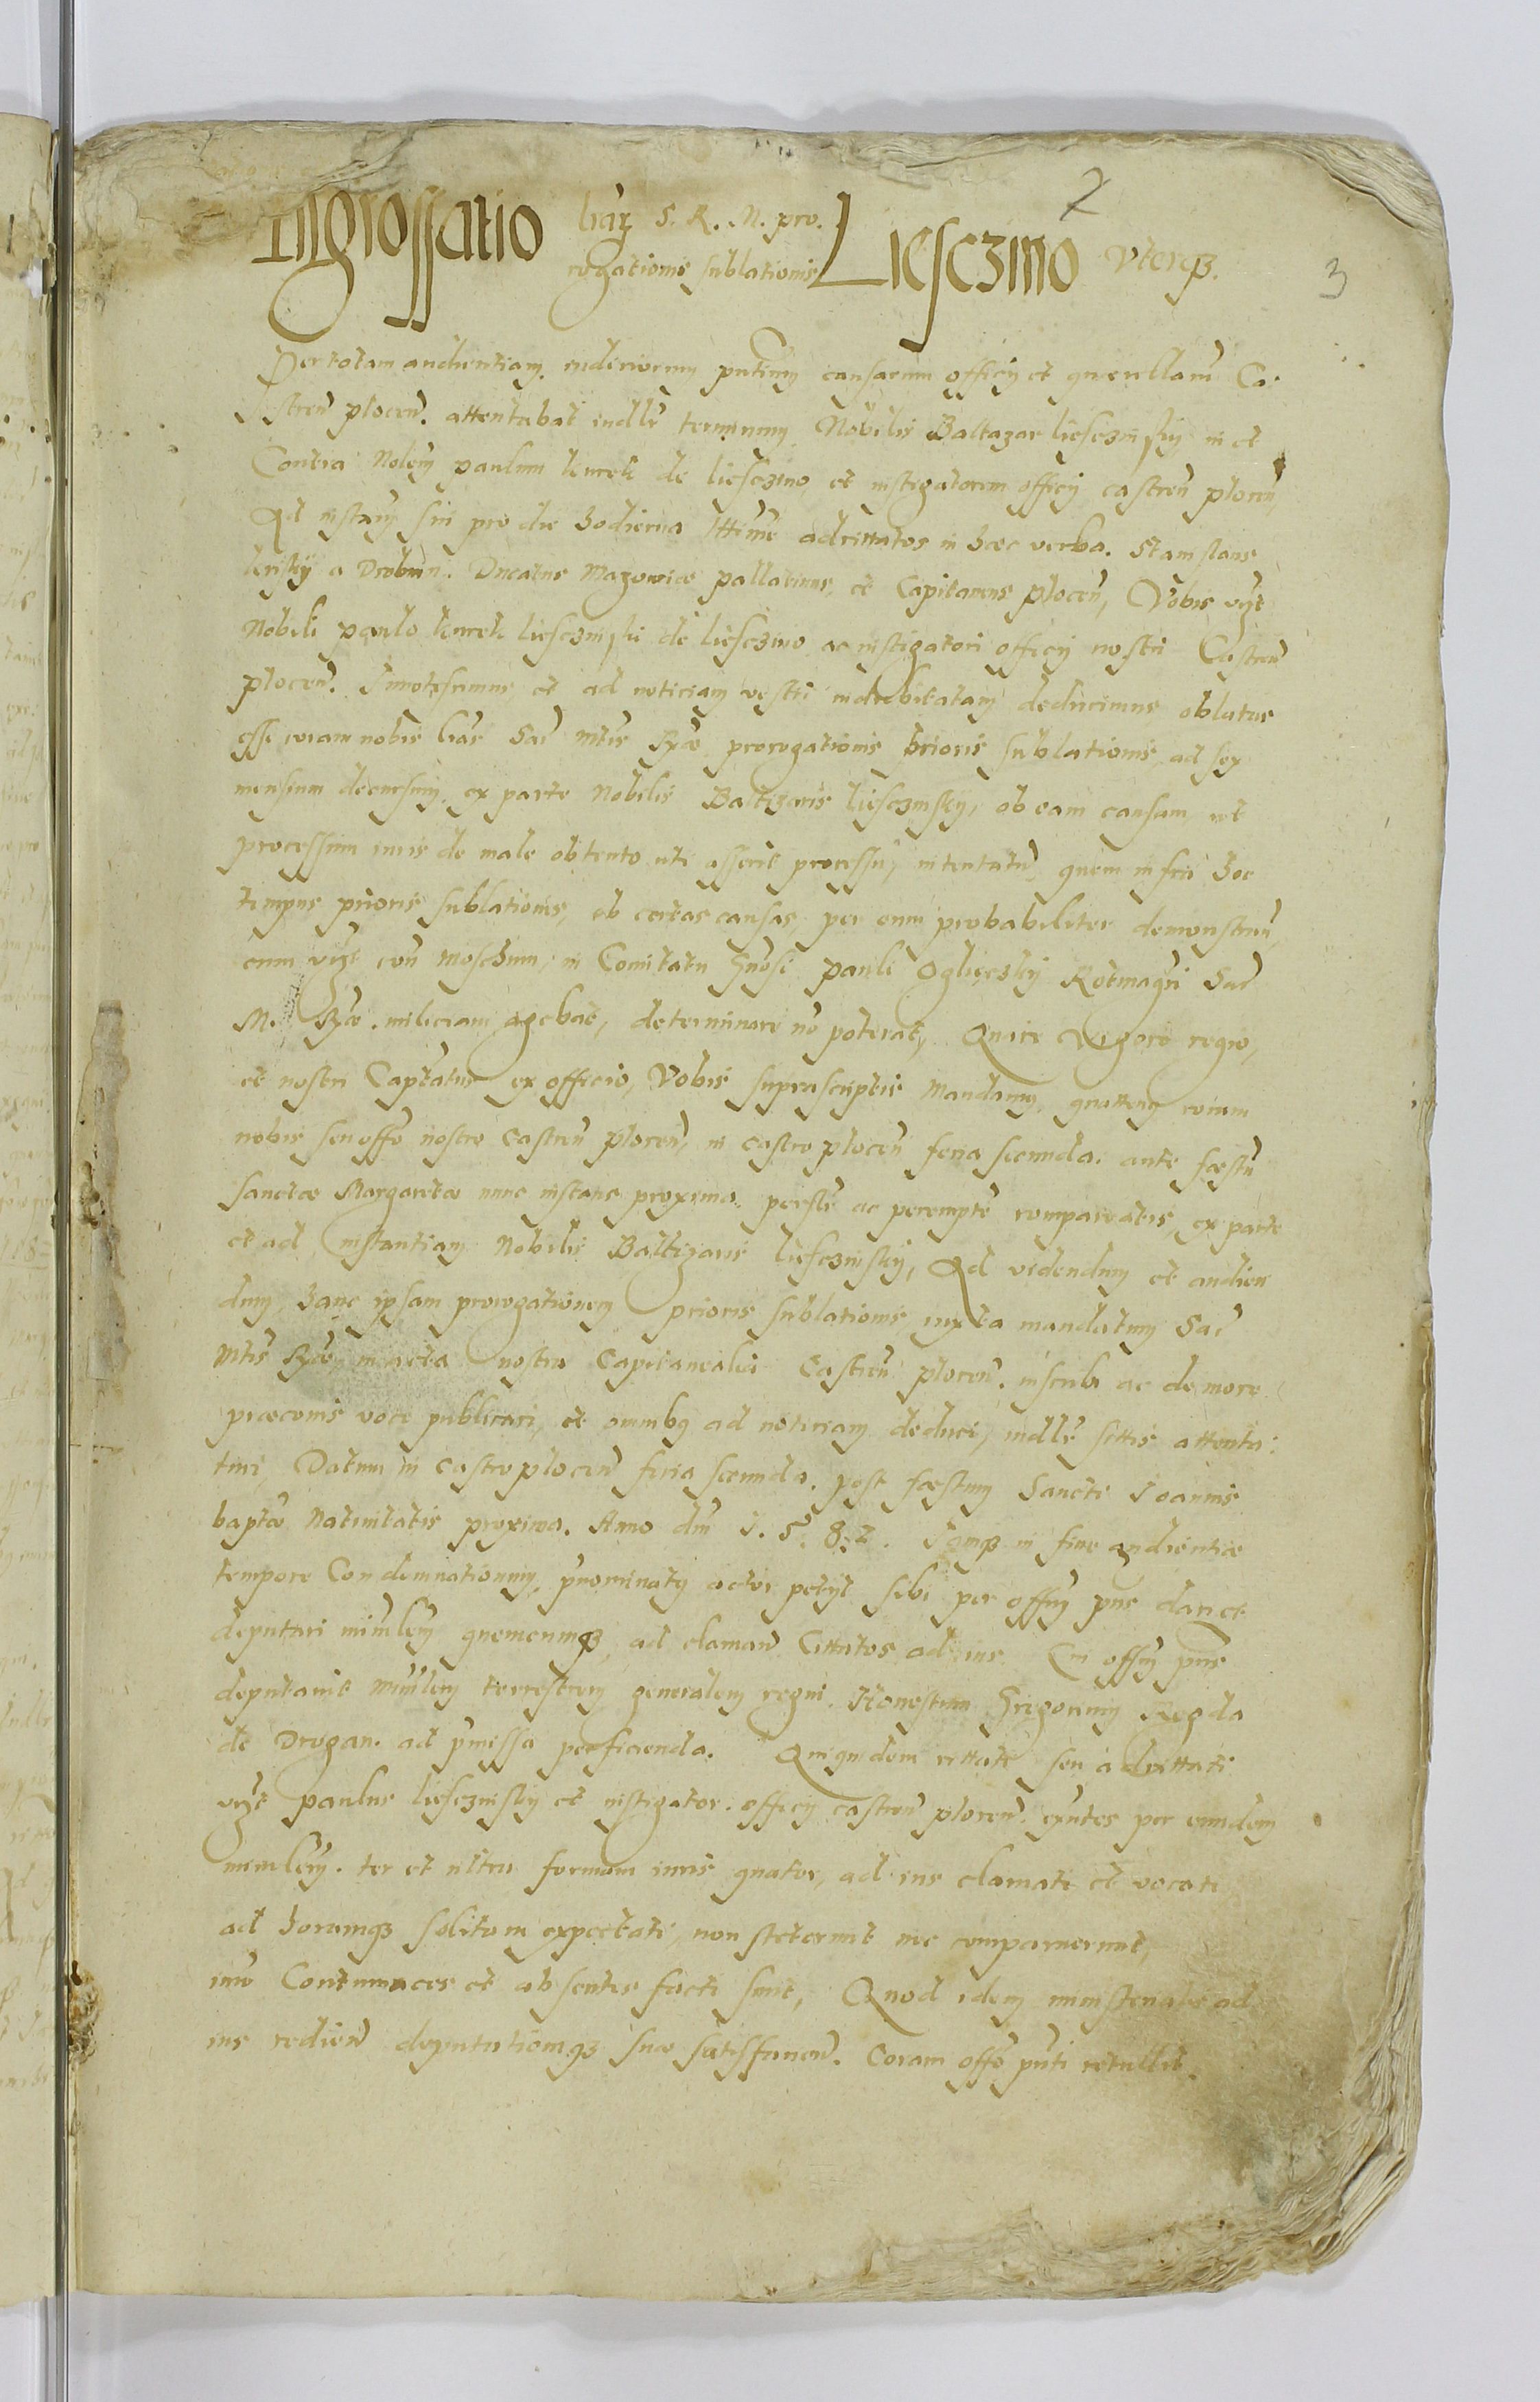 2
3
Ingrossatio lrar S. R. M. pro- Liesczino Vterq3.
rogationis sublationis
Per totam audientiam iudiciorum pntium causarum officij et querellarum Ca-
stren plocen. attentabat iudlr terminum Nobilis Baltazar liesczinsky in et
Contra Nolem paulum kurek de liesczino et instigatorem officij castren plocen,
Ad instam sui pro die hodierna lttime adcittatos in haec verba. Stanislaus
kriskij a Drobnin. Ducatus Mazowiae pallatinus, et Capitaneus plocen, Vobis vzt
Nobili paulo kurek liesczinski de liesczino ac instigatori officij nostri Castren
plocen. Innotescimus et ad noticiam vestri indubitatam deducimus oblatas
esse coram nobis lras Sac Mtis Rgae prorogationis prioris sublationis, ad sex
mensium decursum, ex parte Nobilis Baltizaris liesczinsky, ob eam causam et
processum iuris de male obtento uti asserit processu, intentatum, quem infra hoc
tempus prioris sublationis, ob certas causas, per eum probabiliter demonstran,
cum vzt con Moschum, in Comitatu Gnosi pauli Oglieczky Rotmagri Sac
M. Rgae. miliciam agebat, determinare no poterat, Quare vigore regio,
et nostri Captatus ex officio, Vobis suprascriptis Mandamus, quattenus coram
nobis seu offo nostro Castren plocen, in castro plocen feria secunda. ante faestum
sanctae Margaretae nunc instans proximo. perslr ac perempte compareatis, ex parte
et ad instantiam Nobilis Baltizaris liesczinsky, Ad videndum et audien
dum, hanc ipsam prorogationem prioris sublationis, iuxta mandatum Sac
Mtis Rgae, in acta nostra Capitanealia Castren plocen. inscribi ac de more
praeconis voce publicari, et omnibq ad noticiam deduci, iudlr sittis attenta-
turi, Datum in castro plocen feria secunda. post faestum Sancti Joannis
baptae Natiuitatis proxima. Anno dni 1. 5. 8. 2. Jamq3 in fine audientiae
tempore Condemnationum, pnominatus actor petijt sibi per offm pns dari et
deputari minlem quemcunq3, ad claman Cittatos ad ius. Cui offm pns
deputauit minlem terrestrem generalem regni. Honestum Gregorium Regda
de Drogan. ad pmissa perficienda. Quiquidem cittati seu adcittati
vzt paulus liesczinsky et instigator. officij castren plocen. exntes per eundem
minlem. ter et ultra formam iuris quater, ad ius clamati et vocati
ad horamq3 solitam expectati, non steterunt nec comparuerunt,
imo Contumaces et absentes facti sunt, Quod idem ministerialis ad
ius redien deputationiq3 suae satisfacien. Coram offo pnti retullit.